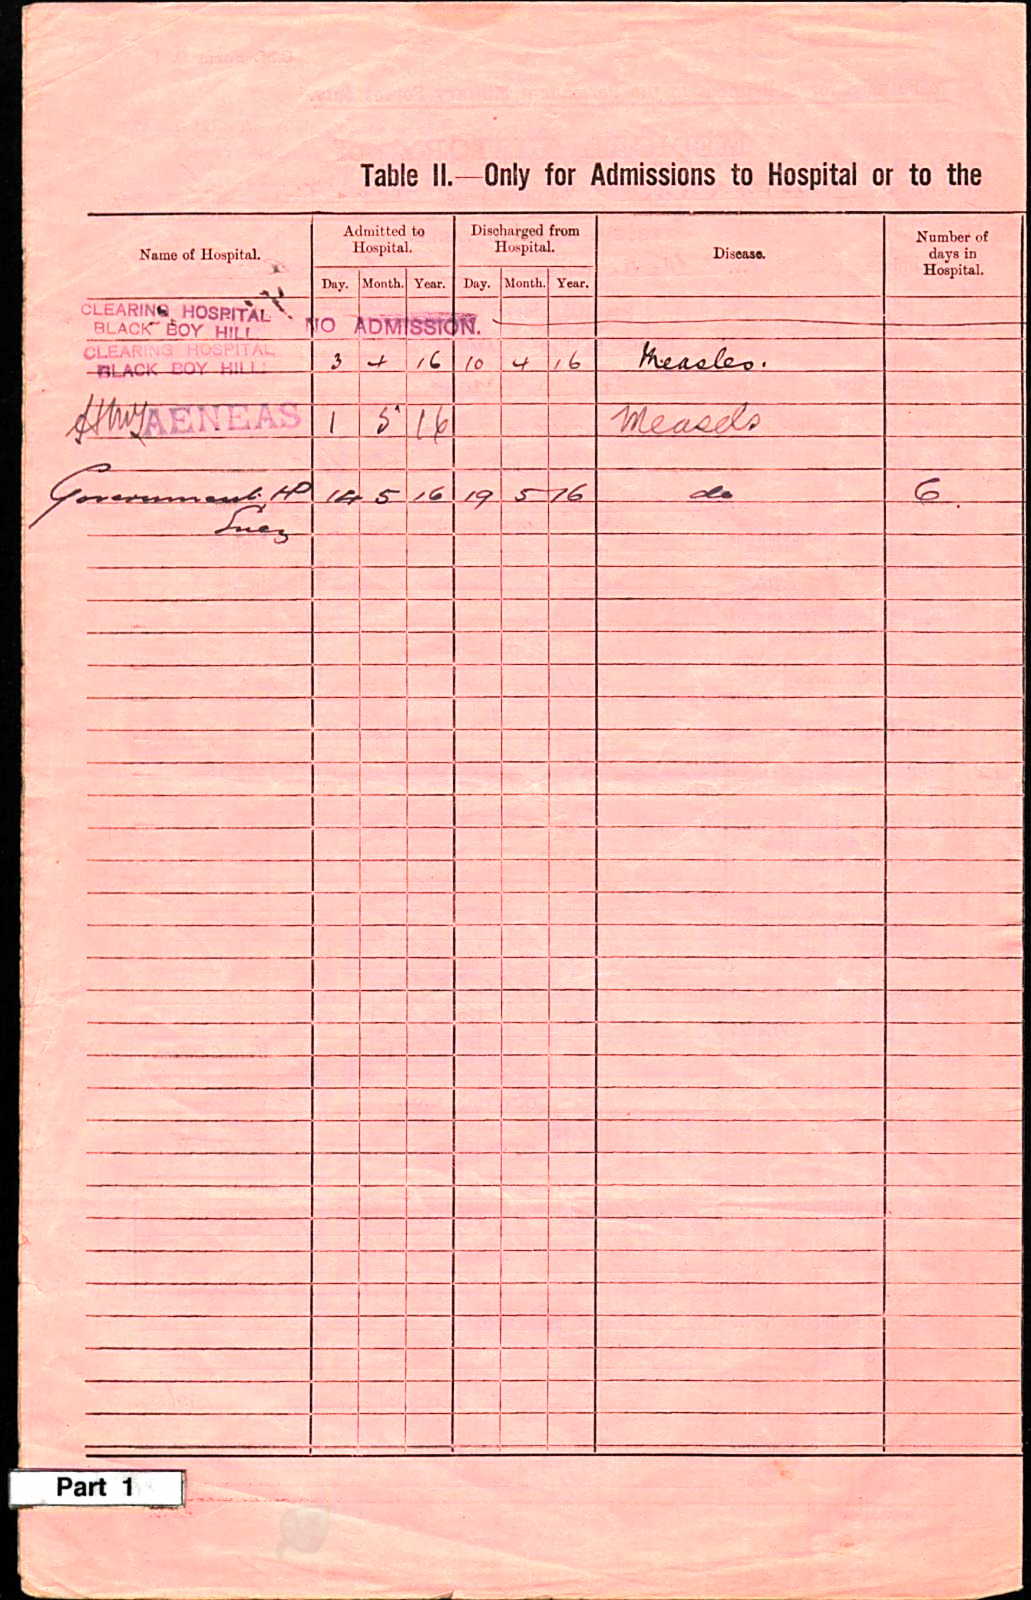 Table II.—Only for Admissions to Hospital or to the
Name of Hospital. Admitted to Hospital. Discharged from Hospital. Disease. Number of days in Hospital.
Day. Month. Year. Day. Month. Year.
CLEARING HOSPITAL
BLACK BOY HILL NO ADMISSION.
CLEARING HOSPITAL
BLACK BOY HILL 3 4 16 10 4 16 Measles.
AENEAS 1 5 16 Measels
Government H 14 5 16 19 5 16 do 6
Suez
Part 1